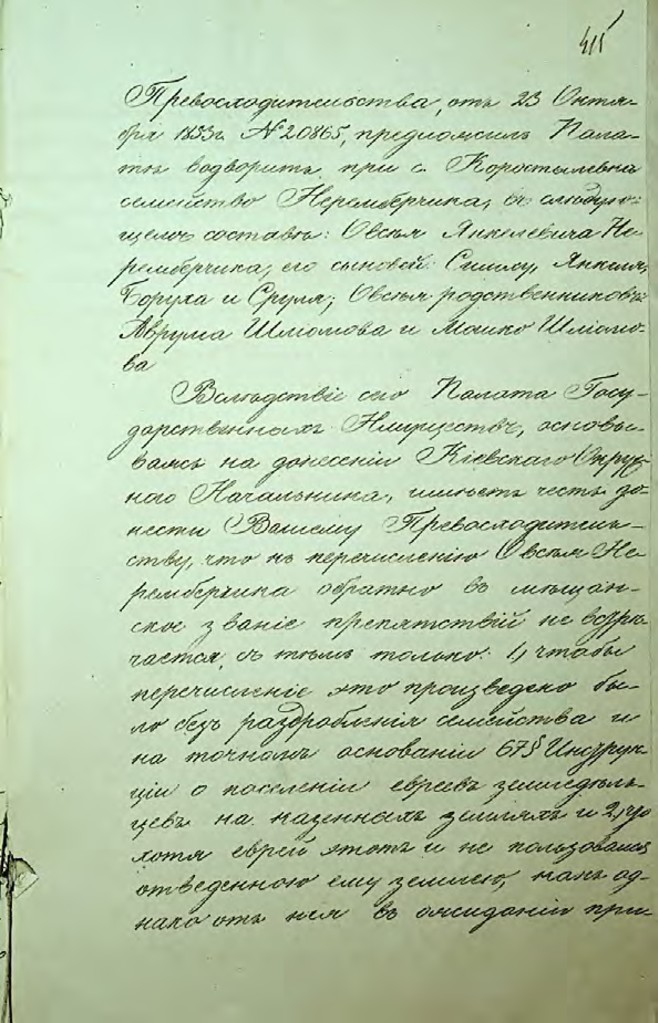 415
Превосходительства, отъ 23 Октя-
бря 1853 г. № 20865, предложилъ Пала-
тѣ водворить при с. Коростылевка
семейство Нерембергчика, въ слѣдую-
щемъ составѣ: Овсѣя Янкелевича Не-
рембергчика, его сыновей: Симху, Янкеля,
Боруха и Сруля; Овсѣя родственниковъ:
Аврума Шмомова и Мошко Шмомо-
ва
Вслѣдствіе сего Палата Госу-
дарственныхъ Имуществъ, основы-
ваясь на донесеніи Кіевскаго Окруж-
наго Начальника, имѣетъ честь до-
нести Вашему Превосходитель-
ству, что къ перечисленію Овсѣя Не-
рембергчика обратно въ мѣщан-
ское званіе препятствій не встрѣ-
чается, съ тѣмъ только: 1, чтобы
перечисленіе это произведено бы-
ло безъ раздробленія семейства и
на точномъ основаніи 67 § Инструк-
ціи о поселеніи евреевъ земледѣль-
цевъ на казенныхъ земляхъ и 2, что
хотя еврей этотъ и не пользовался
отведенною ему землею, какъ од-
нако отъ нея въ ожиданіи при-